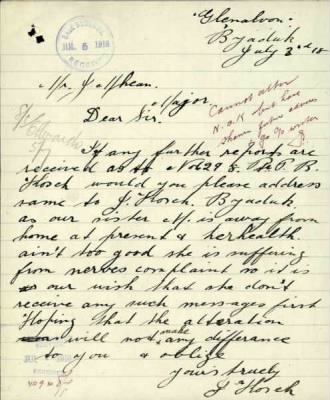 "Glenalvon"
Byaduk
July 3rd 18
BASE RECORDS
JUL 5 1918
Mr. J McLean.
Major.
Dear Sir.
Cannot alter
N.o.K. but have
future
to writer
If any further reports are
received as to No 629 8. Pte P. B.
Kosch would you please address
same to J. Kosch. Byaduk
as our sister M. is away from
home at present & her health
ain't too good she is suffering
from nerves complaint so it is
our wish that she don't
receive any such messages first
Hoping that the alteration
will not make any difference
to you & oblige
yours truely
J Kosch
JUL 1918